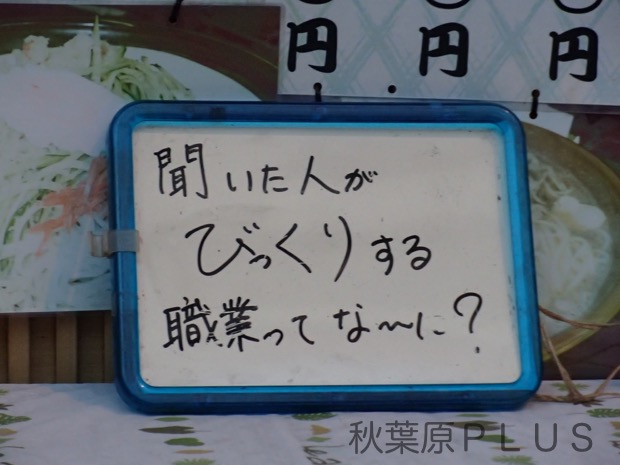 円 円 円
聞いた人が
びっくりする
職業ってな〜に?
秋葉原PLUS